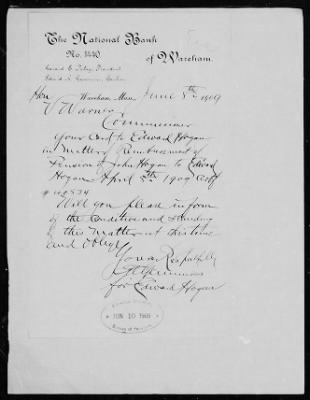 The National Bank
No. 1440
of Wareham.
Wareham, Mass. June 8th 1909
Hon
V Warner
Commissioner
Your Card to Edward Hogan
in matter of Reimbursement of
Pension of John Hogan to Edward
Hogan April 5th 1909 Certf
Will you please inform
of the Condition and Standing
of this Matter at this time
and oblige
Yours Respectfully
for Edward Hogan
JUN 10 1909
Bureau of Pensions